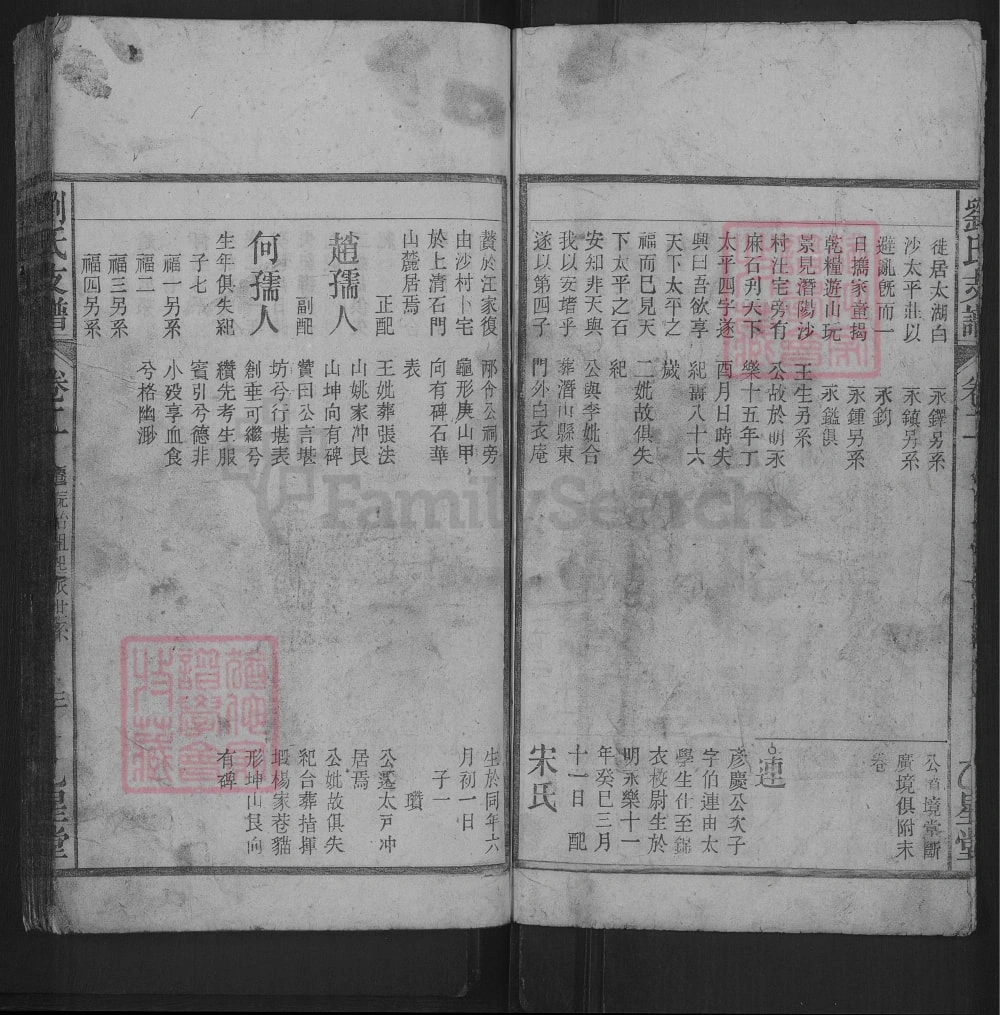 徙居太湖白
沙太平莊以
避亂旣而一
日擕家童揭
乾糧遊山玩
景見潛陽沙
村汪宅旁有
麻石刋天下
太平四字遂
興曰吾欲享
天下太平之
福而已見天
下太平之石
安知非天與
我以安堵乎
遂以第四子
贅於汪家復
由沙村小宅
於上清石門
山麓居焉
正配
趙孺人
副配
何孺人
生年俱失紀
子七
福一另系
福二
福三另系
福四另系
永鐸另系
永鎮另系
永鈞
永鍾另系
永鑑俱
王生另系
公故於明永
樂十五年丁
酉月日時失
紀壽八十六
歲
二妣故俱失
紀
公與李妣合
葬潛山縣東
門外白衣庵
祁令公祠旁
龜形庚山甲
向有碑石華
表
王妣葬張法
山姚家冲艮
山坤向有碑
贊曰公言堪
坊兮行堪表
創垂可繼兮
纘先考生服
賓引兮德非
小歿享血食
兮格幽渺
廣境俱附末
卷
連
彦慶公次子
字伯連由太
學生仕至錦
衣校尉生於
明永樂十一
年癸巳三月
十一日 配
宋氏
生於同年六
月初一日
子一
瓚
公遷太戸冲
居焉
公妣故俱失
紀台葬指揮
塅楊家巷貓
形坤山艮向
有碑
劉氏支譜
卷二
乙星堂
FamilySearch